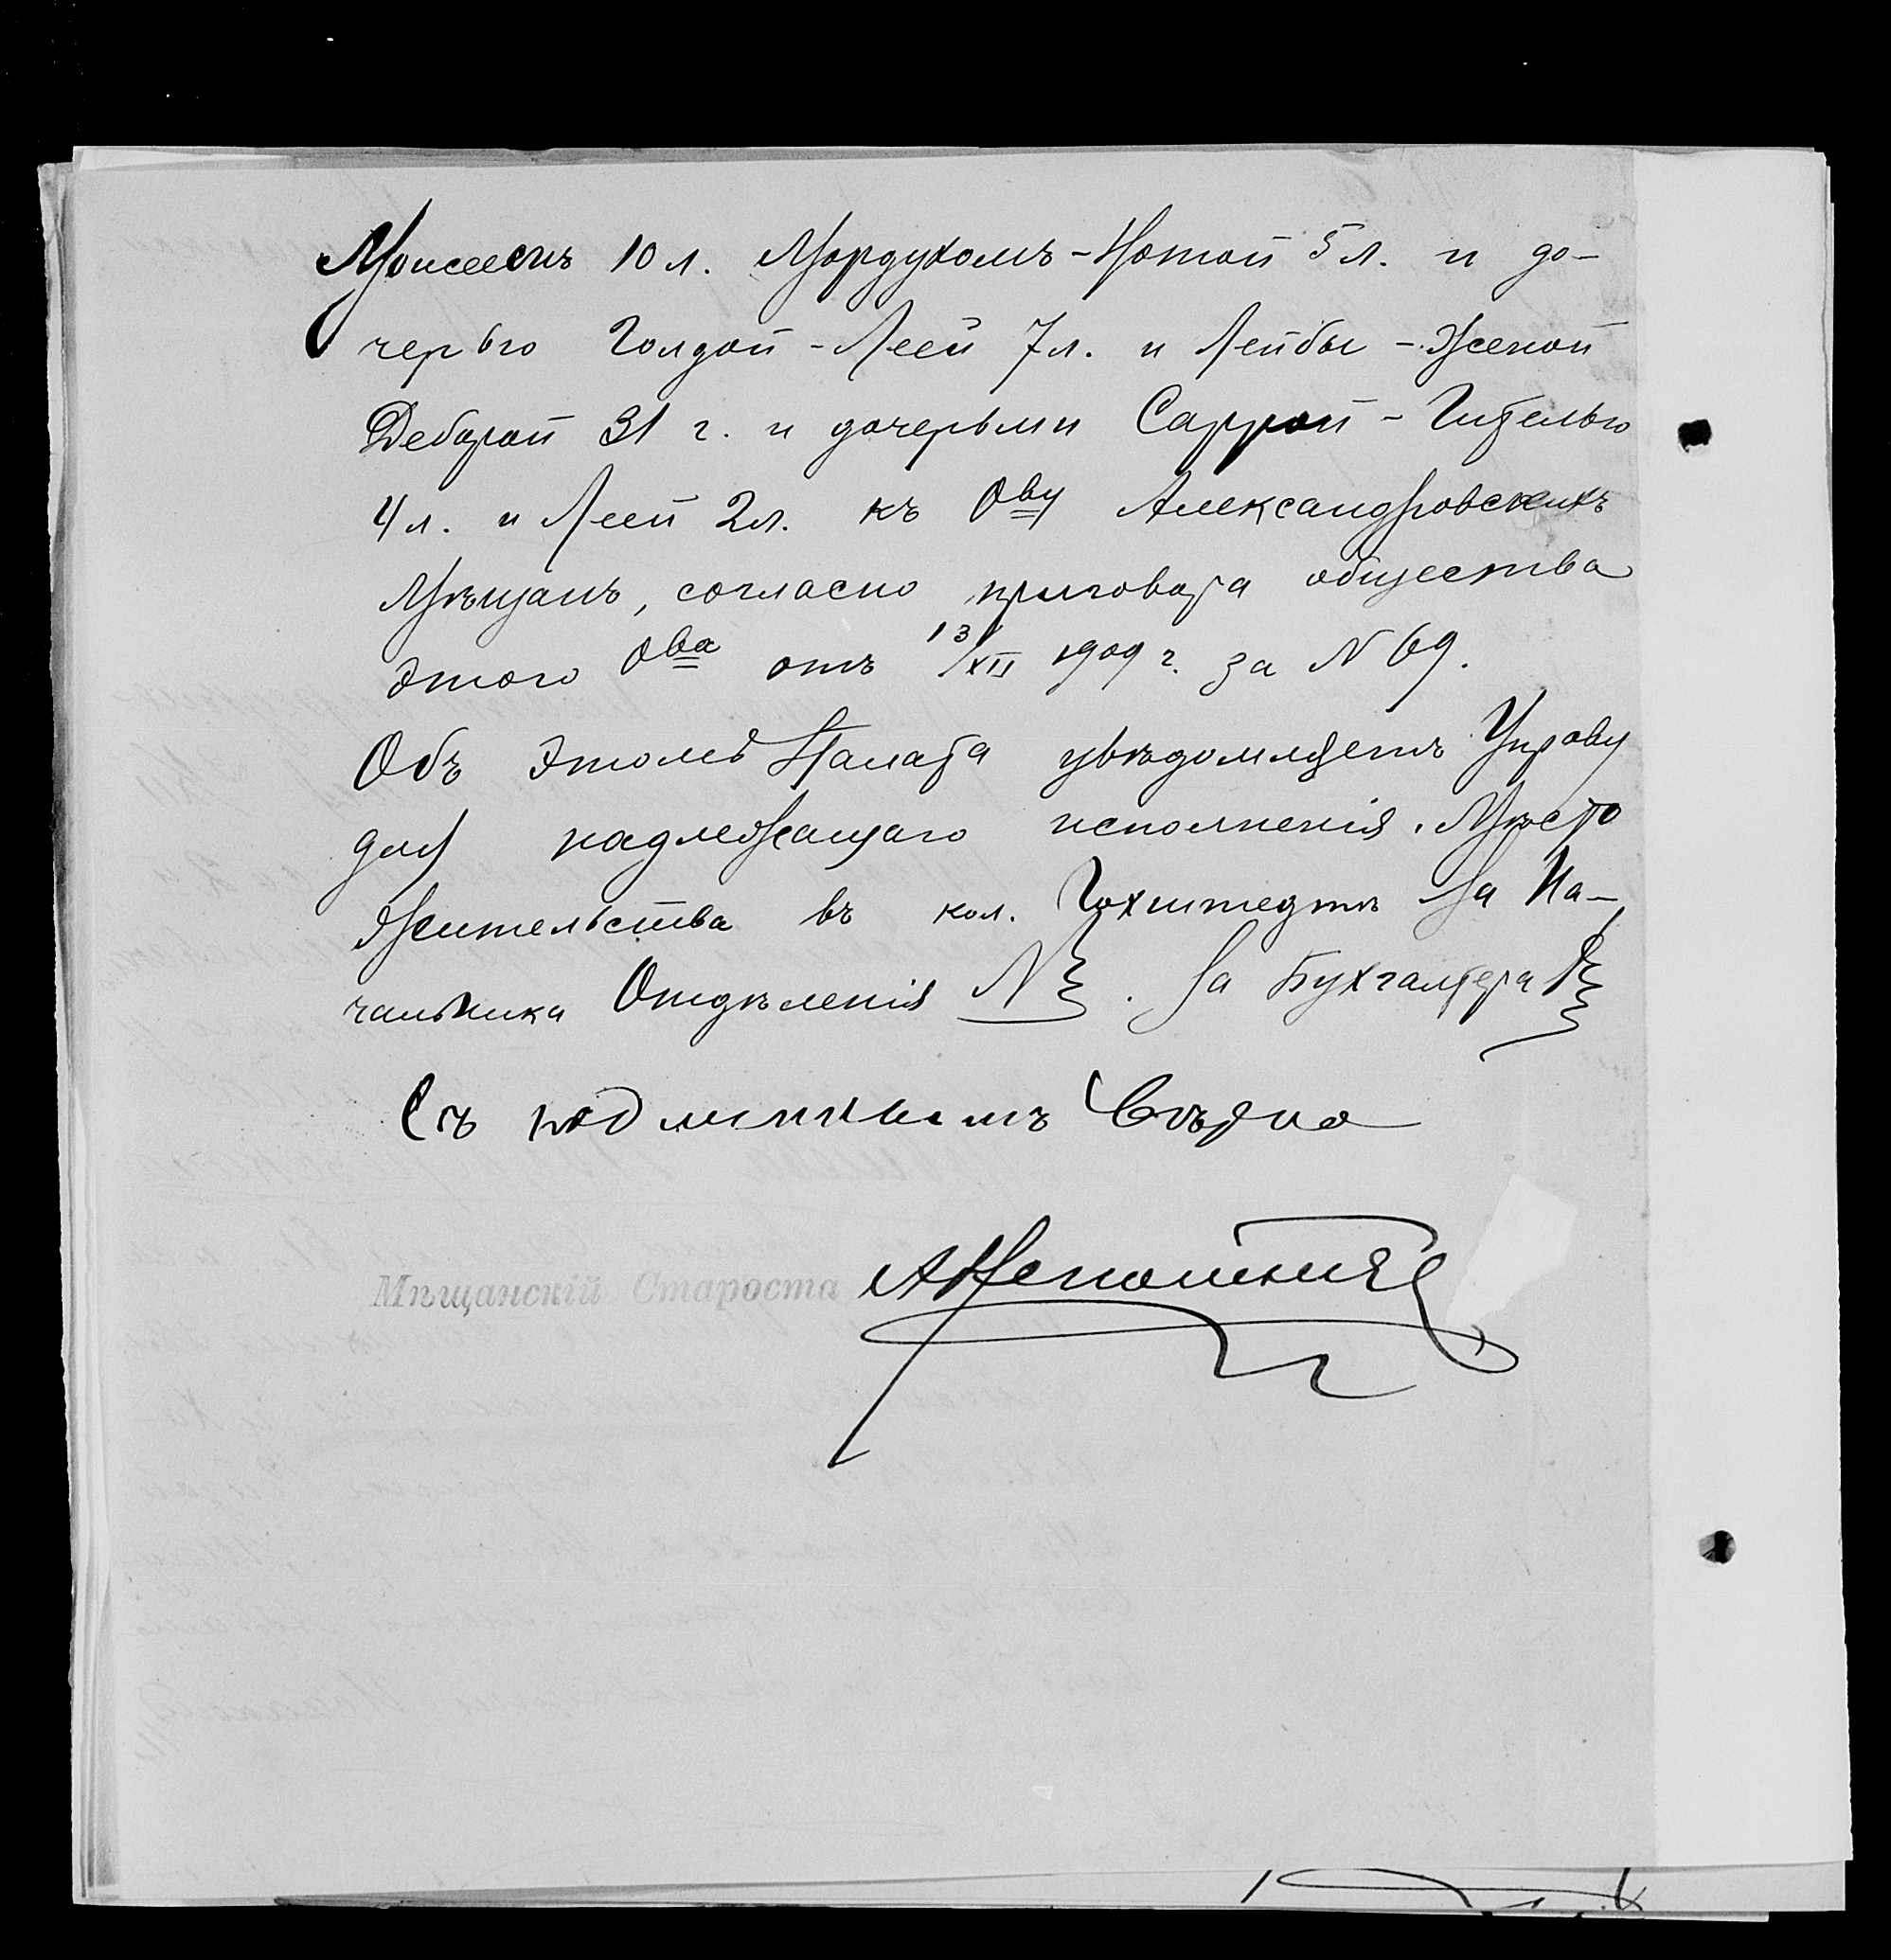 Моисеемъ 10 л. Мордухомъ-Нотой 5 л. и до-
черью Голдой-Леей 7 л. и Лейбы - женой
Деборой 31 г. и дочерьми Саррой-Гителью
4 л. и Леей 2 л. къ Ову Александровскихъ
Мѣщанъ, согласно приговора общества
этого Ова отъ 13/XII 1909 г. за N 69.
Объ этомъ Палата увѣдомляетъ Управу
для надлежащаго исполненія. Мѣсто
жительства въ кол. Гохштедтъ За На-
чальника Отдѣленія N. За Бухгалтера
Съ подлиннымъ вѣрно
Мѣщанскій Староста